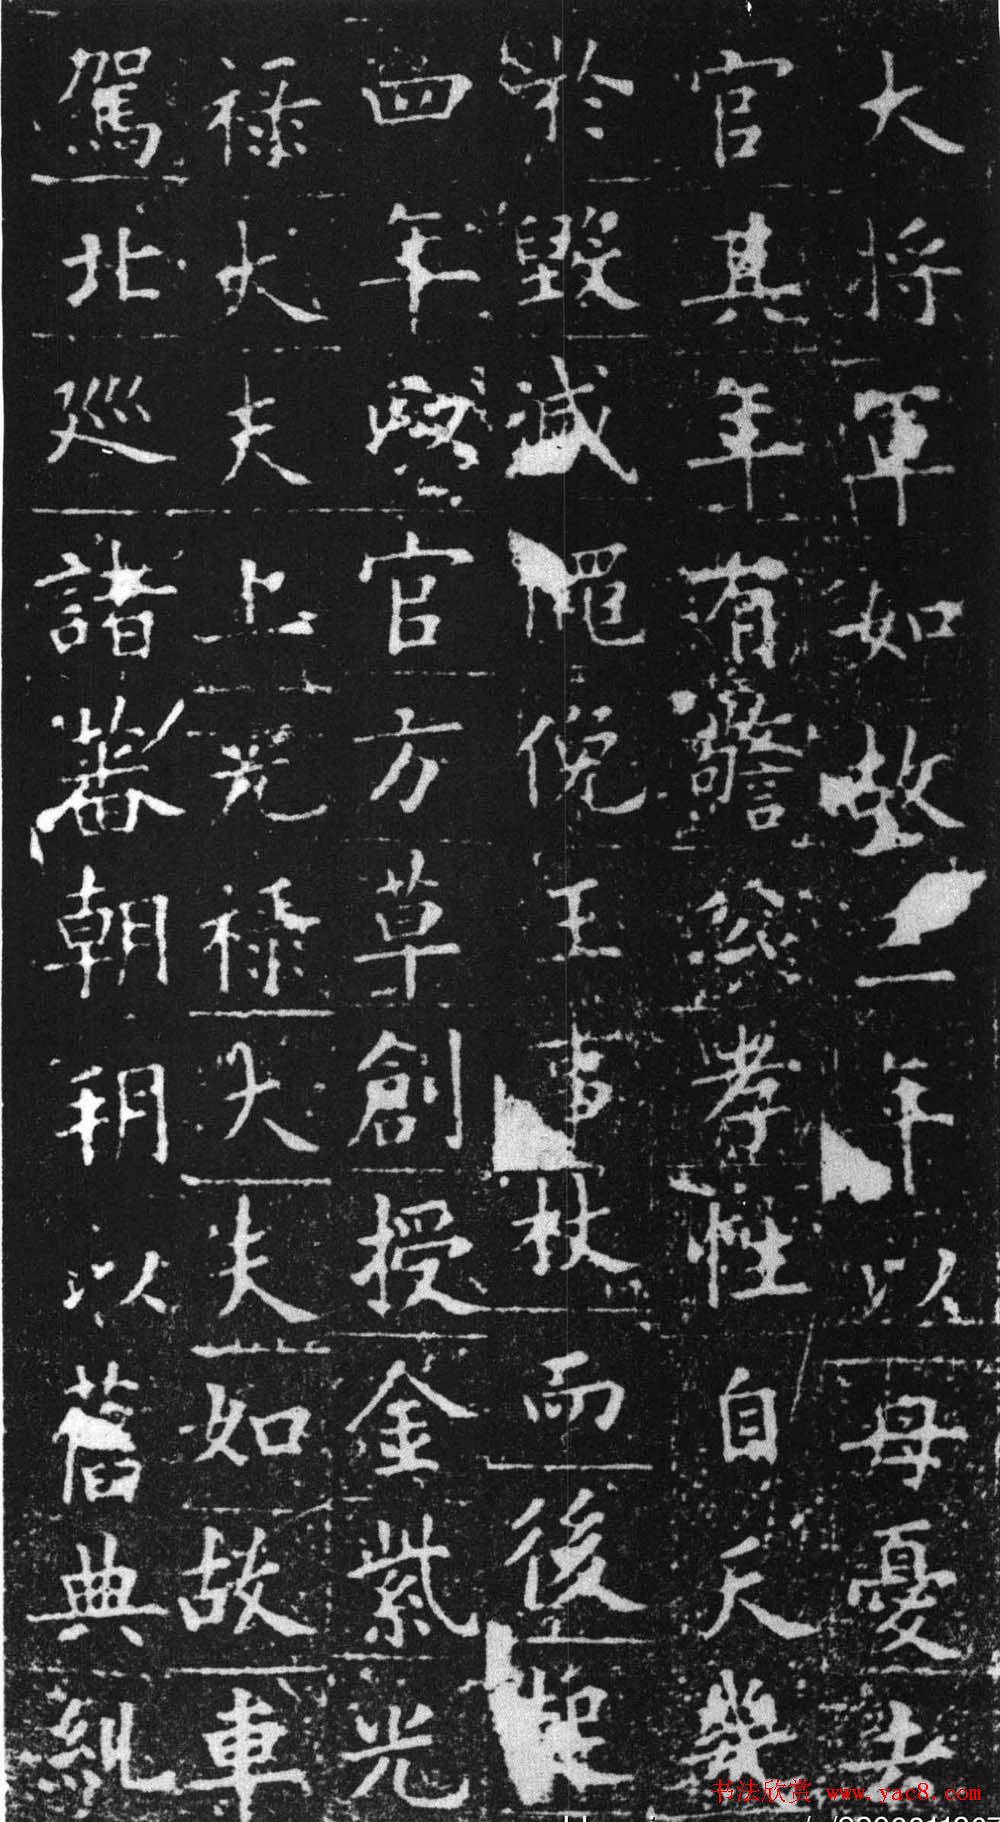 大將軍如故年以母憂去
官其年有公孝性自天幾
於毀滅僶俛王事杖而後起
四年官方草創授金紫光
祿大夫上光祿大夫如故車
駕北廵諸蕃朝以舊典糺
书法欣赏 www.yac8.com